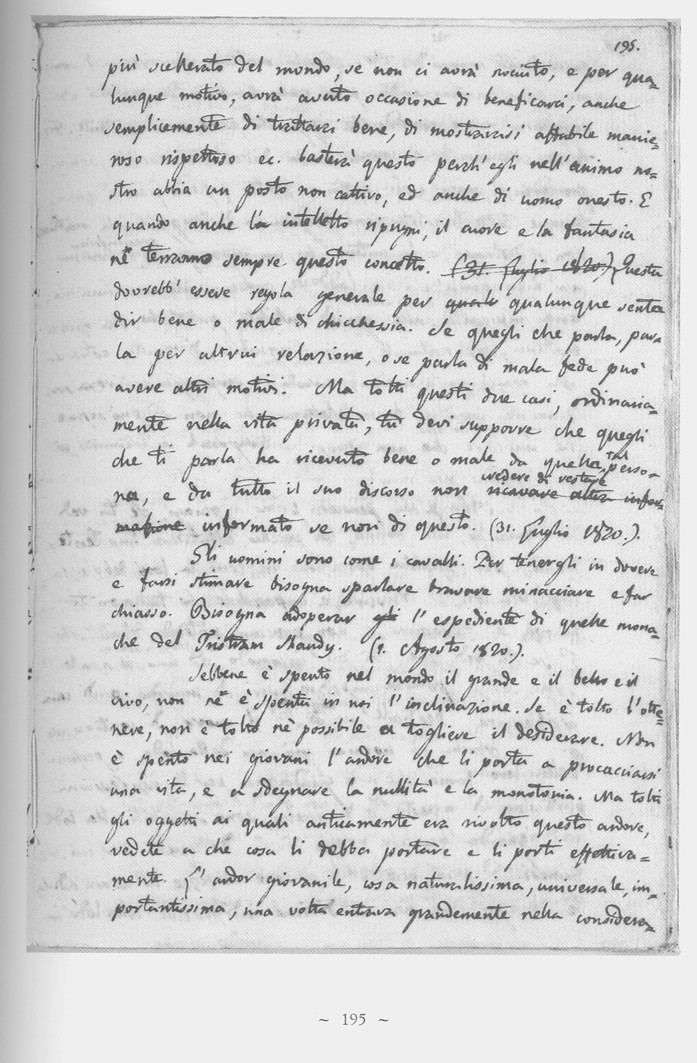 195.
più scellerato del mondo, se non ci avrà nociuto, e per qua=
lunque motivo, avrà avuto occasione di beneficarci, anche
semplicemente di trattarci bene, di mostrarcisi affabile manie=
roso rispettoso ec. basterà questo perch'egli nell'animo no=
stro abbia un posto non cattivo, ed anche di uomo onesto. E
quando anche l'intelletto ripugni, il cuore e la fantasia
ne terranno sempre questo concetto. (31. Luglio 1820.) Questa
dovrebb'essere regola generale per qualunque senta
dir bene o male di chicchessia. Se quegli che parla, par=
la per altrui relazione, o se parla di mala fede può
avere altri motivi. Ma tolti questi due casi, ordinaria=
mente nella vita privata, tu devi supporre che quegli
che ti parla ha ricevuto bene o male da quella tal perso=
na, e da tutto il suo discorso non credere di restare
informato se non di questo. (31. Luglio 1820.).
Gli uomini sono come i cavalli. Per tenergli in dovere
e farsi stimare bisogna sparlare bravare minacciare e far
chiasso. Bisogna adoperar l'espediente di quelle mona=
che del Tristram Shandy. (1. Agosto 1820.).
Sebbene è spento nel mondo il grande e il bello e il
vivo, non ne è spenta in noi l'inclinazione. Se è tolto l'otte=
nere, non è tolto nè possibile a togliere il desiderare. Non
è spento nei giovani l'ardore che li porta a procacciarsi
una vita, e a sdegnare la nullità e la monotonia. Ma tolti
gli oggetti ai quali anticamente era rivolto questo ardore,
vedete a che cosa li debba portare e li porti effettiva=
mente. L'ardor giovanile, cosa naturalissima, universale, im=
portantissima, una volta entrava grandemente nella considera=
~ 195 ~